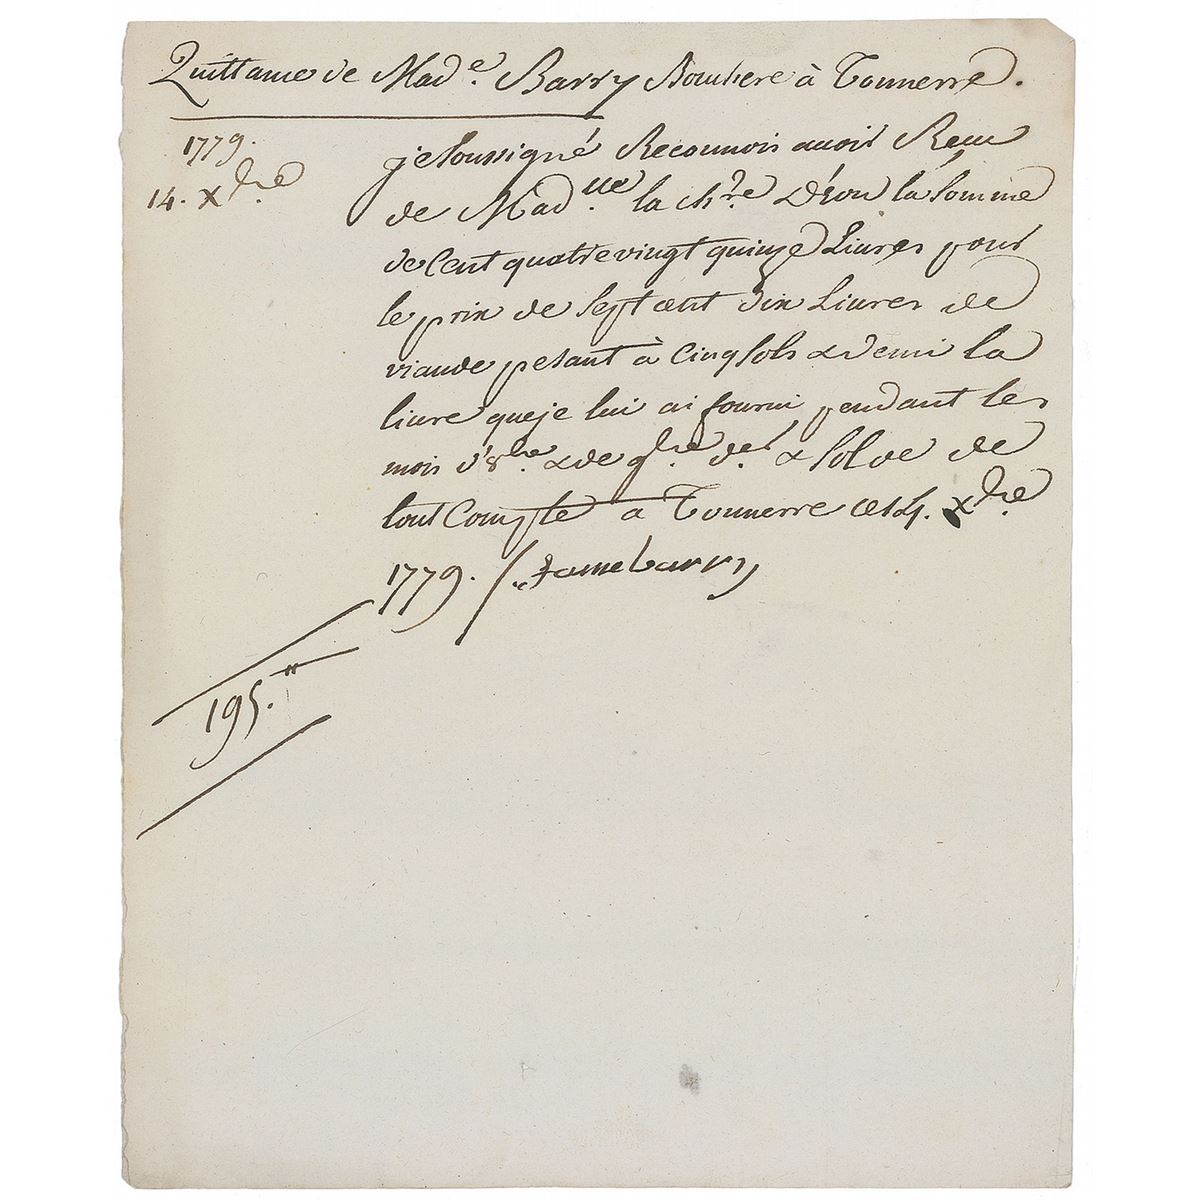 Quittance de Mad.e Barry Bouchere à Tonnerre.
1779.
14. Xbre
je soussigné Reconnois avoir Recu
de Mad.lle la chre D'éon la somme
de Cent quatre vingt quinze Livres pour
le prix de sept cent dix Livres de
viande pesant à Cinq sols & demi la
livre que je lui ai fourni pendant les
mois d'8bre & de 9bre der & solde de
tout Compte a Tonnerre ce 14. Xbre
1779. / fame barry
195.#